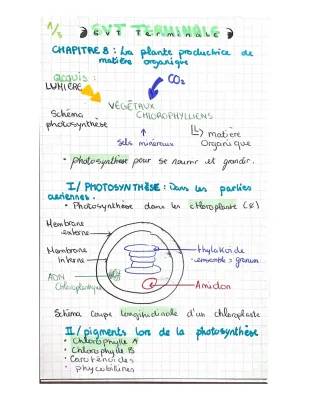 1/3
SVT TERMINALE
SVT Terminale
CHAPITRE 8 : La plante productrice de
matière organique
acquis :
LUMIÈRE
CO₂
VÉGÉTAUX
CHLOROPHYLLIENS
Schéma
photosynthèse
Sels minéraux
matière
Organique
• photosynthèse pour se nourrir et grandir.
I / PHOTOSYNTHÈSE : Dans les parties
aériennes.
• Photosynthèse dans les chloroplaste
Membrane
externe
Membrane
Interne
thylakoïde
ensemble = granum
ADN
Chloroplastique
Amidon
Schéma coupe longitudinale d'un chloroplaste
II / pigments lors de la photosynthèse
• Chlorophylle A
• Chlorophylle B
• Caroténoïdes
• phycobilines